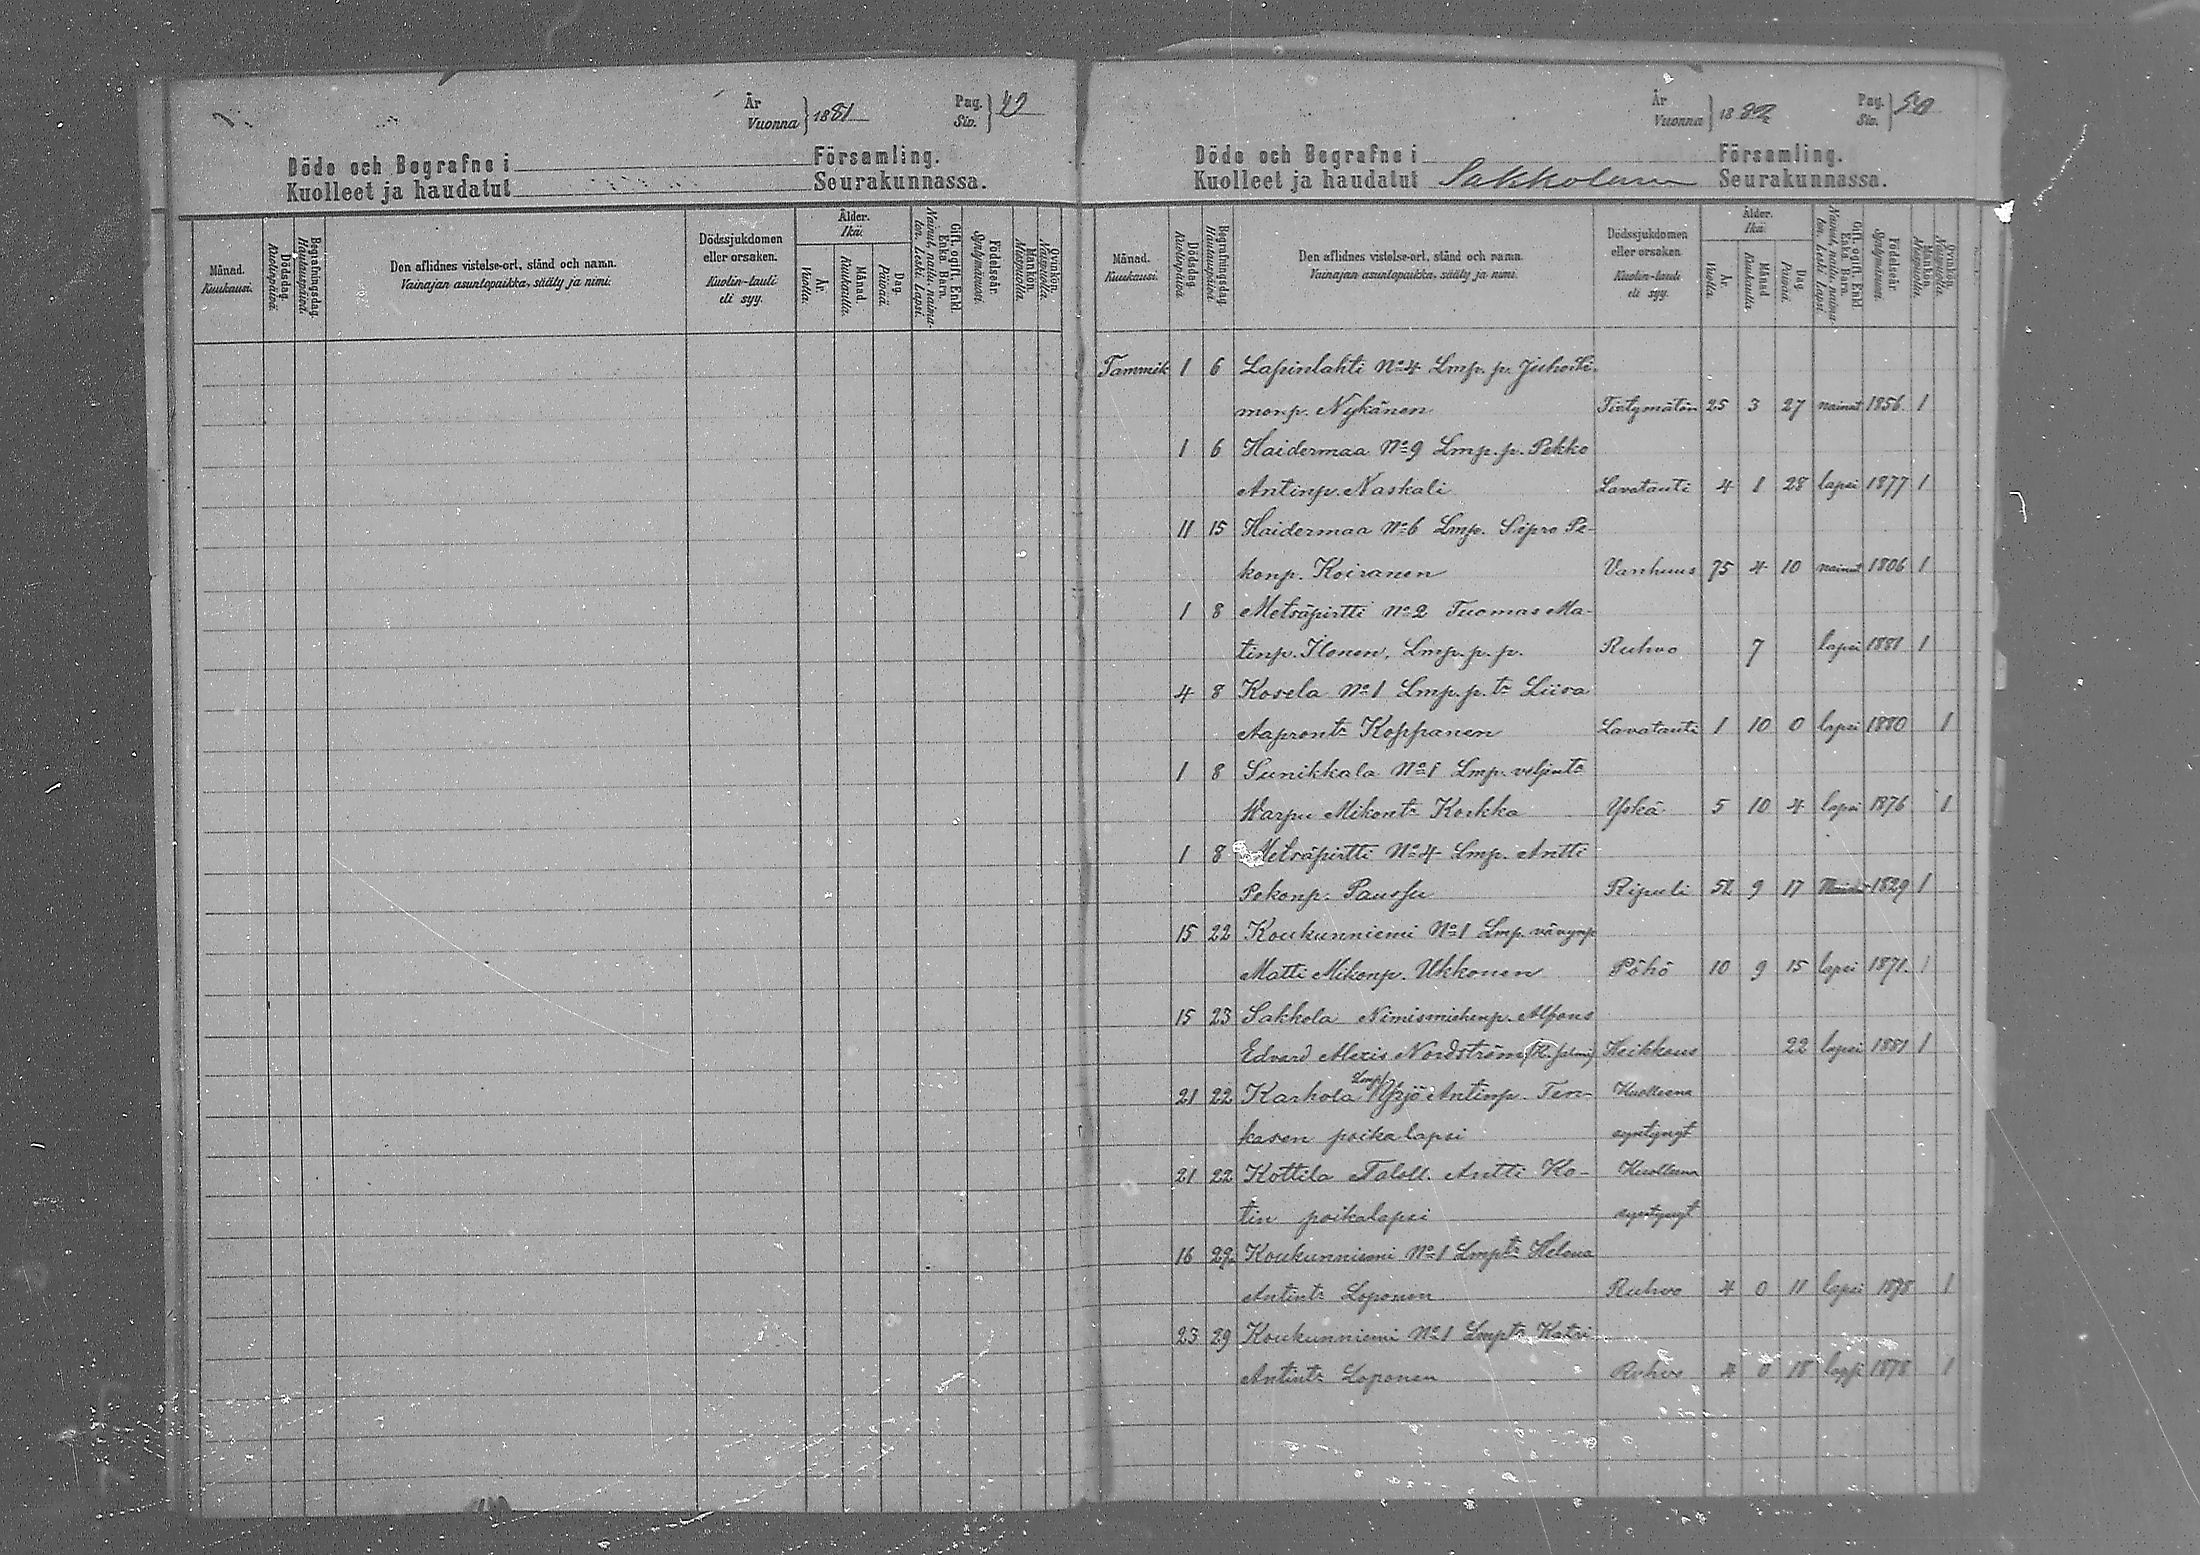 År
Vuonna } 1881 Pag. Siv. } 49
Döde och Begrafne i Församling.
Kuolleet ja haudatut Seurakunnassa.
Månad. Kuukausi. Dödsdag. Kuolinpäivä. Begrafningsdag. Hautauspäivä. Den aflidnes vistelse-ort, stånd och namn. Vainajan asuntopaikka, sääty ja nimi. Dödssjukdomen eller orsaken. Kuolin-tauti eli syy. Ålder. Ikä. År. Vuotta. Månad. Kuukautta. Dag. Päivää. Gift, ogift, Enkl. Enka. Barn. Nainut, naitu, naimaton. Leski. Lapsi. Födelseår. Syntymävuosi. Mankön. Miespuolia. Qvinkön. Naispuolia.
År
Vuonna } 1882 Pag. Siv. } 50
Döde och Begrafne i Församling.
Kuolleet ja haudatut Sakkolan Seurakunnassa.
Månad. Kuukausi. Dödsdag. Kuolinpäivä. Begrafningsdag. Hautauspäivä. Den aflidnes vistelse-ort, stånd och namn. Vainajan asuntopaikka, sääty ja nimi. Dödssjukdomen eller orsaken. Kuolin-tauti eli syy. Ålder. Ikä. År. Vuotta. Månad. Kuukautta. Dag. Päivää. Gift, ogift, Enkl. Enka. Barn. Nainut, naitu, naimaton. Leski. Lapsi. Födelseår. Syntymävuosi. Mankön. Miespuolia. Qvinkön. Naispuolia.
Tammik 1 6 Lapinlahti No 4 Lmp. p. Juho Si-
monp. Nykänen Tietymätön 25 3 27 nainut 1856 1
1 6 Haidermaa No 9 Lmp. p. Pekko
Antinp. Naskali Lavatauti 4 1 28 lapsi 1877 1
11 15 Haidermaa No 6 Lmp. Sipro Pe-
konp. Koiranen Vanhuus 75 4 10 nainut 1806 1
1 8 Metsäpirtti No 2 Tuomas Ma-
tinp. Ilonen, Lmp. p. p. Ruhvo 7 lapsi 1881 1
4 8 Kosela No 1 Lmp. p. tr Liisa
Aapront. Koppanen Lavatauti 1 10 0 lapsi 1880 1
1 8 Sunikkala No 1 Lmp. veljentr
Warpu Mikont. Korkka Yskä 5 10 4 lapsi 1876 1
1 8 Metsäpirtti No 4 Lmp. Antti
Pekonp. Paussu Ripuli 52 9 17 1829 1
15 22 Koukunniemi No 1 Lmp. vävynp
Matti Mikonp. Ukkonen Pöhö 10 9 15 lapsi 1871. 1
15 23 Sakkola Nimismiehenp. Alfons
Edvard Alexis Nordström Heikkous 22 lapsi 1881 1
21 22 Karhola Lmp. Yrjö Antinp. Ten- Kuolleena
kasen poikalapsi syntynyt
21 22 Kottila Taloll. Antti Ko- Kuolleena
tin poikalapsi syntynyt
16 22 Koukunniemi No 1 Lmptr Helena
Antintr Loponen Ruhvo 4 0 11 lapsi 1878 1
23 29 Koukunniemi No 1 Lmptr Katri
Antintr Loponen Ruhvo 4 0 18 lapsi 1878 1